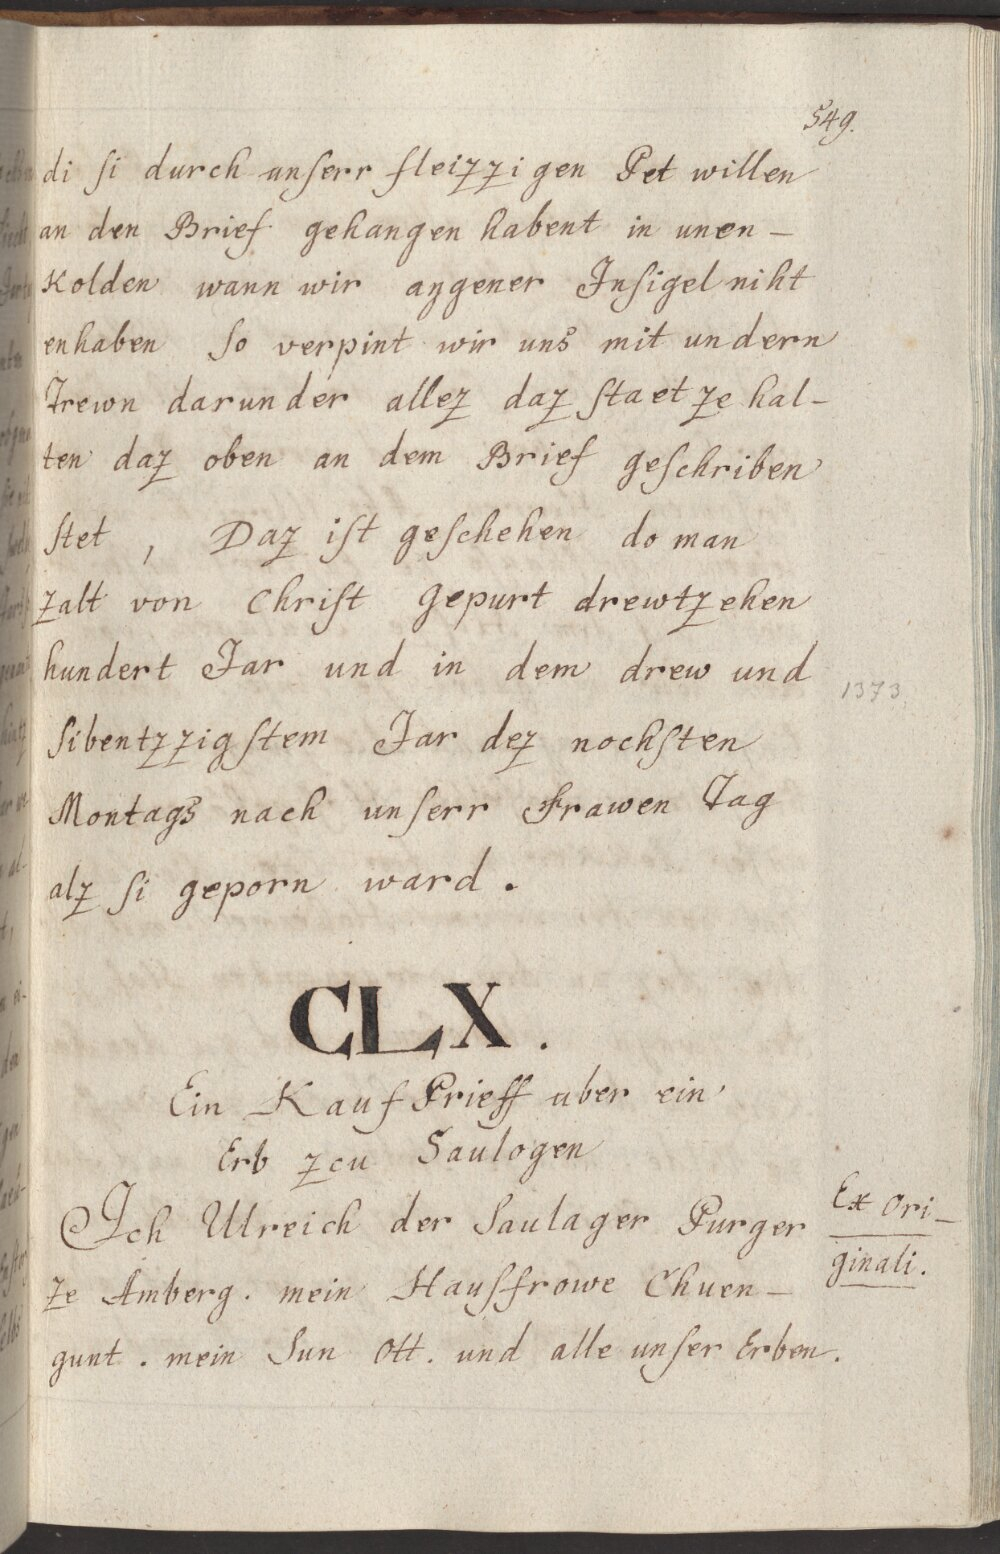 549.
di si durch unserr fleizzigen Pet willen
an den Brief gehangen habent in unen-
Kolden wann wir aygener Insigel niht
enhaben So verpint wir uns mit undern
Trewn darunder allez daz staet ze hal-
ten daz oben an dem Brief geschriben
stet , Daz ist geschehen do man
zalt von Christ gepurt drewtzehen
hundert Jar und in dem drew und
1373
Sibentzzigstem Jar dez nochsten
Montags nach unserr Frawen Tag
alz si geporn ward .
CLX.
Ein Kauf Prieff uber ein
Erb zcu Saulogen
Ex Ori-
ginali.
Ich Ulreich der Saulager Purger
ze Amberg . mein Hausfrowe Chuen-
gunt . mein Sun Ott . und alle unser Erben .